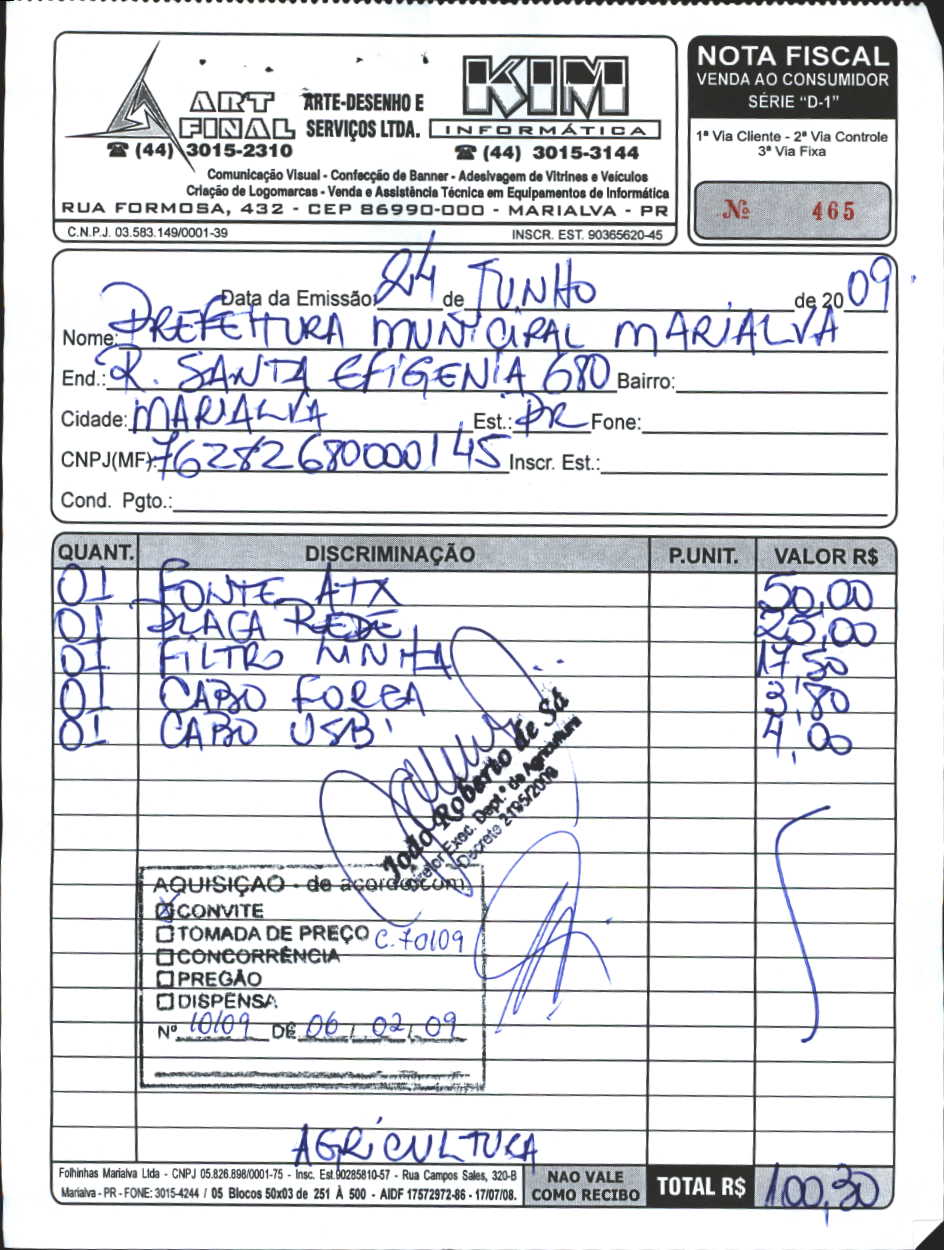 ART FINAL ARTE-DESENHO E SERVIÇOS LTDA. KIM INFORMÁTICA
☎ (44) 3015-2310 ☎ (44) 3015-3144
Comunicação Visual - Confecção de Banner - Adesivagem de Vitrines e Veículos
Criação de Logomarcas - Venda e Assistência Técnica em Equipamentos de Informática
RUA FORMOSA, 432 - CEP 86990-000 - MARIALVA - PR
C.N.P.J. 03.583.149/0001-39 INSCR. EST. 90365620-45
NOTA FISCAL
VENDA AO CONSUMIDOR
SÉRIE "D-1"
1ª Via Cliente - 2ª Via Controle
3ª Via Fixa
Nº 465
Data da Emissão: 24 de JUNHO de 2009
Nome: PREFEITURA MUNICIPAL MARIALVA
End.: R. SANTA EFIGENIA 680 Bairro:
Cidade: MARIALVA Est.: PR Fone:
CNPJ(MF): 76282680000145 Inscr. Est.:
Cond. Pgto.:
QUANT. DISCRIMINAÇÃO P.UNIT. VALOR R$
01 FONTE ATX 50,00
01 PLACA REDE 25,00
01 FILTRO LINHA 17,50
01 CABO FORÇA 3,80
01 CABO USB 4,00
João Roberto de Sá
Diretor Exec. Dept.º de Agricultura
Decreto 2195/2009
AQUISIÇÃO - de acordo com
☒ CONVITE
☐ TOMADA DE PREÇO C.70109
☐ CONCORRÊNCIA
☐ PREGÃO
☐ DISPENSA
Nº 10/09 DE 06 / 02 / 09
AGRICULTURA
Folhinhas Marialva Ltda - CNPJ 05.826.898/0001-75 - Insc. Est.90285810-57 - Rua Campos Sales, 320-B
Marialva - PR - FONE: 3015-4244 / 05 Blocos 50x03 de 251 À 500 - AIDF 17572972-86 - 17/07/08.
NAO VALE
COMO RECIBO
TOTAL R$ 100,30